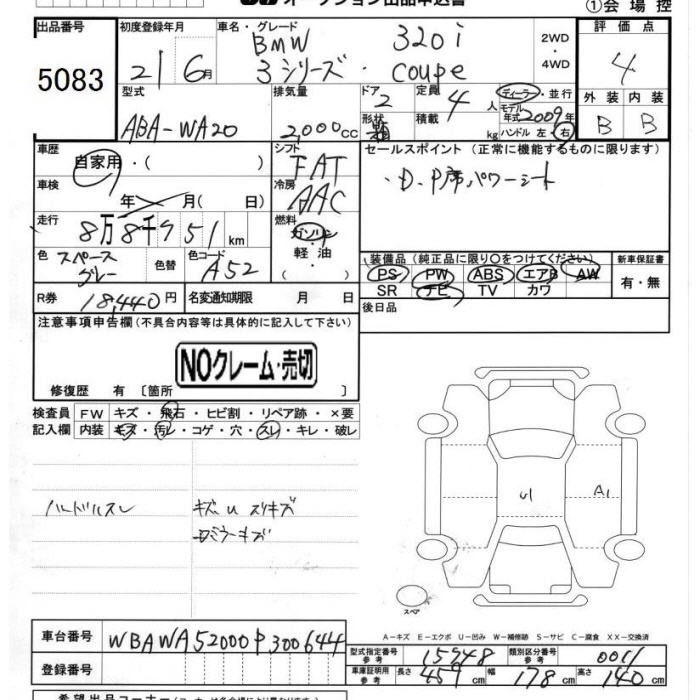 オークション出品申込書
①会場控
出品番号 初度登録年月 車名・グレード 評価点
5083 21 6月 BMW 320i 2WD・4WD 4
3シリーズ・coupe
型式 排気量 ドア 2 定員 4人 ディーラー・並行 外装 内装
ABA-WA20 2,000cc 形状 積載 kg モデル年式 2009年 B B
ハンドル 左・右
車歴 自家用・( ) シフト FAT セールスポイント (正常に機能するものに限ります)
車検 年 月(日) 冷房 AAC ・D.P席パワーシート
走行 8万8千951km 燃料 ガソリン・軽油
色 スペースグレー 色替 色コード A52 装備品(純正品に限り○をつけてください) 新車保証書
PS PW ABS エアB AW 有・無
SR ナビ TV カワ
R券 18,440円 名変通知期限 月 日 後日品
注意事項申告欄(不具合内容等は具体的に記入して下さい)
NOクレーム・売切
修復歴 有 [箇所 ]
検査員 FW キズ・飛石・ヒビ割・リペア跡・×要
記入欄 内装 キズ・汚レ・コゲ・穴・スレ・キレ・破レ
ハンドルスレ キズ U スリキズ
ミラーキズ
U1 A1
スペア
A－キズ E－エクボ U－凹み W－補修跡 S－サビ C－腐食 XX－交換済
車台番号 WBAWA52000P300644 型式指定番号 参考 15948 類別区分番号 参考 0011
登録番号 車庫証明用 参考 長さ 459cm 幅 178cm 高さ 140cm
希望出品コーナー